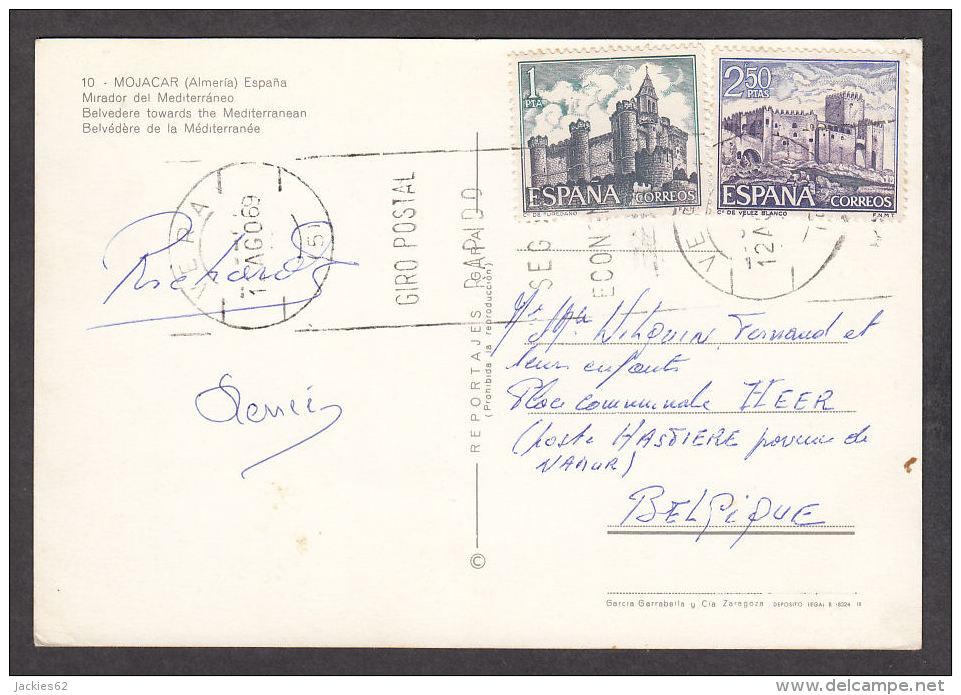 10 - MOJACAR (Almería) España
Mirador del Mediterráneo
Belvedere towards the Mediterranean
Belvédère de la Méditerranée
1 PTA
ESPAÑA CORREOS
Cº DE TUREGANO
2,50 PTAS
ESPAÑA CORREOS
Cº DE VELEZ BLANCO F.N.M.T
VERA
AGO69
GIRO POSTAL
RAPIDO
SEG
ECON
VE
12 A
Richard
REPORTAJES
(Prohibida la reproducción)
©
WILQUIN Fernand et
leurs enfants
Place communale HEER
(poste HASTIERE province de
NAMUR)
BELGIQUE
García Garrabella y Cía Zaragoza DEPOSITO LEGAL B
jackies62
delcampe.net